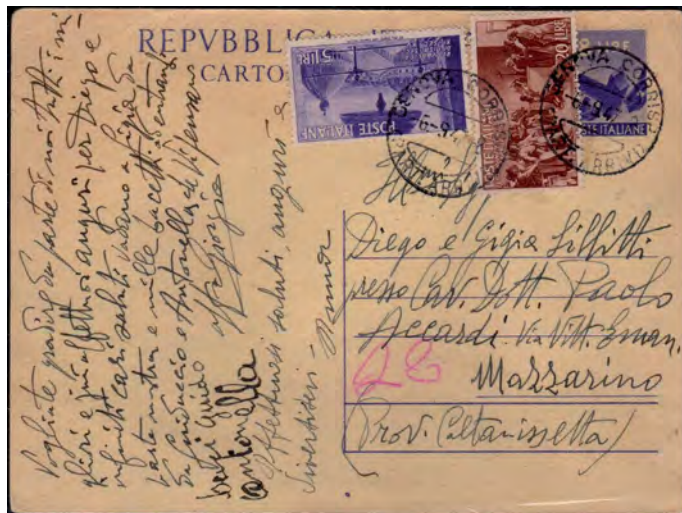 REPVBBLICA
CARTO
5 LIRE
POSTE ITALIANE
20 LIRE
8 LIRE
STE ITALIANE
GENOVA CORRISP
ARRIVI
GENOVA CORRISP
ARRIVI
Diego e Gigia Lillitti
presso Cav. Dott. Paolo
Accardi. Via Vitt. Eman.
Mazzarino
(Prov. Caltanissetta)
Vogliate gradire da parte di noi tutti i mi-
gliori e più affettuosi auguri per Diego e
infiniti cari saluti vadano a Gigia da
parte nostra e mille bacetti ad entrambi
da Antonella
aff Giorgio
baci Guido
antonella
Affettuosi saluti, auguri e
divertitevi - Nanna